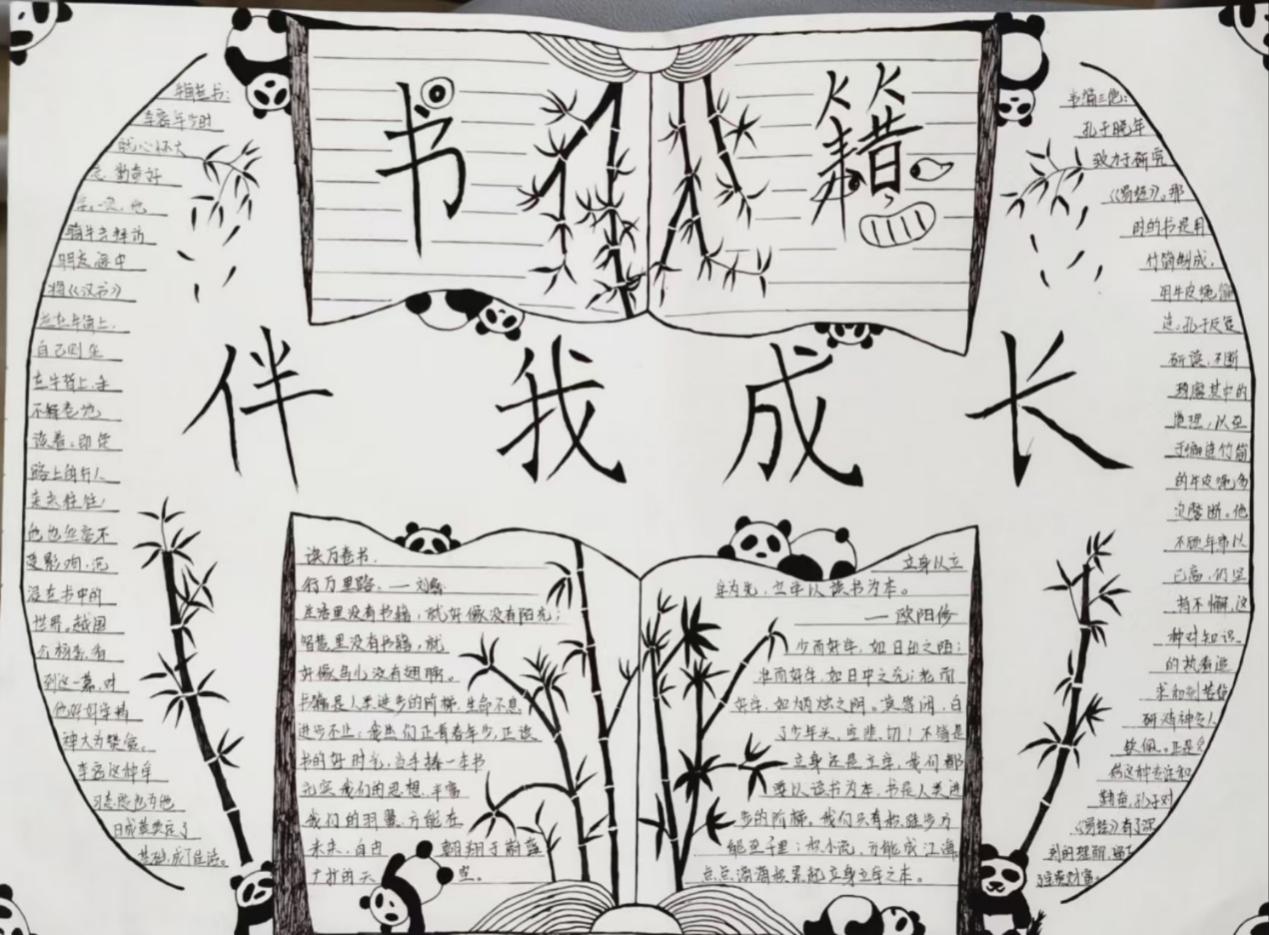 书籍
伴我成长
牛角挂书:
李密年少时
就心怀大
志,勤奋好
学。一次,他
骑牛去拜访
朋友,途中
将《汉书》
挂在牛角上,
自己则坐
在牛背上,手
不释卷地
读着。即使
路上的行人
来来往往,
他也丝毫不
受影响,沉
浸在书中的
世界。越国
公杨素,看
到这一幕,对
他好好学精
神大为赞赏。
李密这种学
习态度也为他
日成就奠定了
基础,成了佳话。
读万卷书,
行万里路。—刘彝
生活里没有书籍,就好像没有阳光;
智慧里没有书籍,就
好像鸟儿没有翅膀。
书籍是人类进步的阶梯,生命不息
进步不止;我们正青春年少,正读
书的好时光,当手捧一本书
充实我们的思想,丰富
我们的羽翼,方能在
未来,自由 翱翔于蔚蓝
广袤的天 空。
立身以立
学为先,立学以读书为本。
—欧阳修
少而好学,如日出之阳;
壮而好学,如日中之光;老而
好学,如炳烛之明。莫等闲,白
了少年头,空悲切!不管是
立身还是立学,我们都
要以读书为本,书是人类进
步的阶梯。我们只有积跬步方
能至千里;积小流,方能成江海,
点点滴滴积累起立身立学之本。
韦编三绝:
孔子晚年
致力于研究
《易经》。那
时的书是用
竹简制成,
用牛皮绳编
连。孔子反复
研读,不断
琢磨其中的
道理,以至
于编连竹简
的牛皮绳多
次磨断。他
不顾年事以
已高,仍坚
持不懈,这
种对知识
的执着追
求和刻苦钻
研精神令人
钦佩。正是凭
借这种专注和
勤奋,孔子对
《易经》有了深
刻的理解,留下
了宝贵财富。